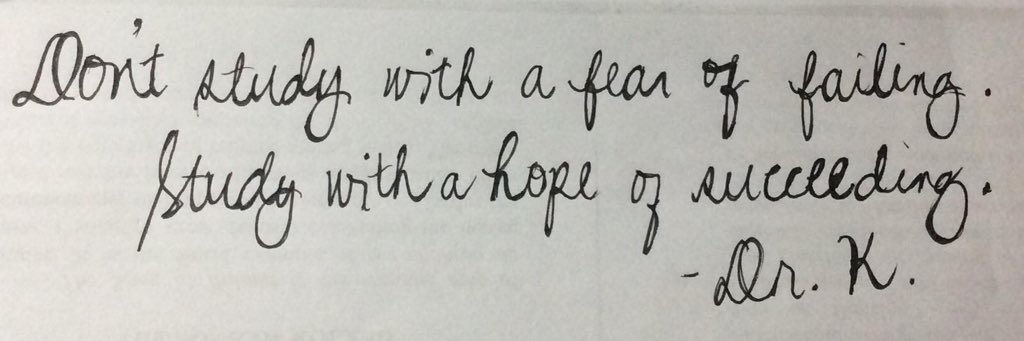 Don't study with a fear of failing.
Study with a hope of succeeding.
- Dr. K.